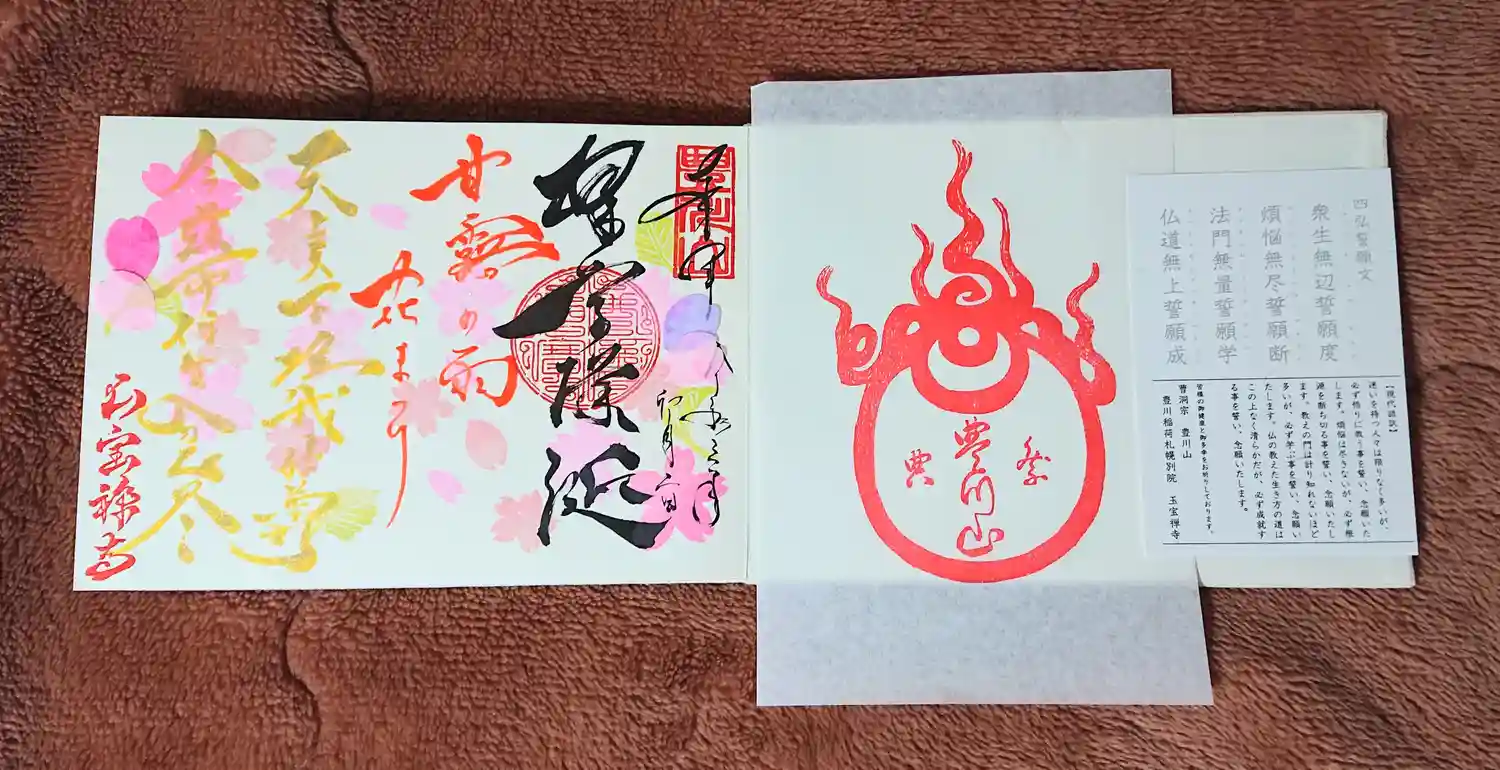 四弘誓願文
衆生無辺誓願度
煩悩無尽誓願断
法門無量誓願学
仏道無上誓願成
【現代語訳】
迷いを持つ人々は限りなく多いが、
必ず悟りに救う事を誓い、念願いた
します。煩悩は尽きないが、必ず根
源を断ち切る事を誓い、念願いたし
ます。教えの門は計り知れないほど
多いが、必ず学ぶ事を誓い、念願い
たします。仏の教えた生き方の道は
この上なく清らかだが、必ず成就す
る事を誓い、念願いたします。
皆様の御健康と御多幸をお祈りしております。
曹洞宗 豊川山
豊川稲荷札幌別院 玉宝禅寺
豊川山
典
豊川山
奉拝
卯月
釋尊降誕
甘露の雨
花まつり
天上天下唯我独尊
今茲而往生分已尽
玉宝禅寺